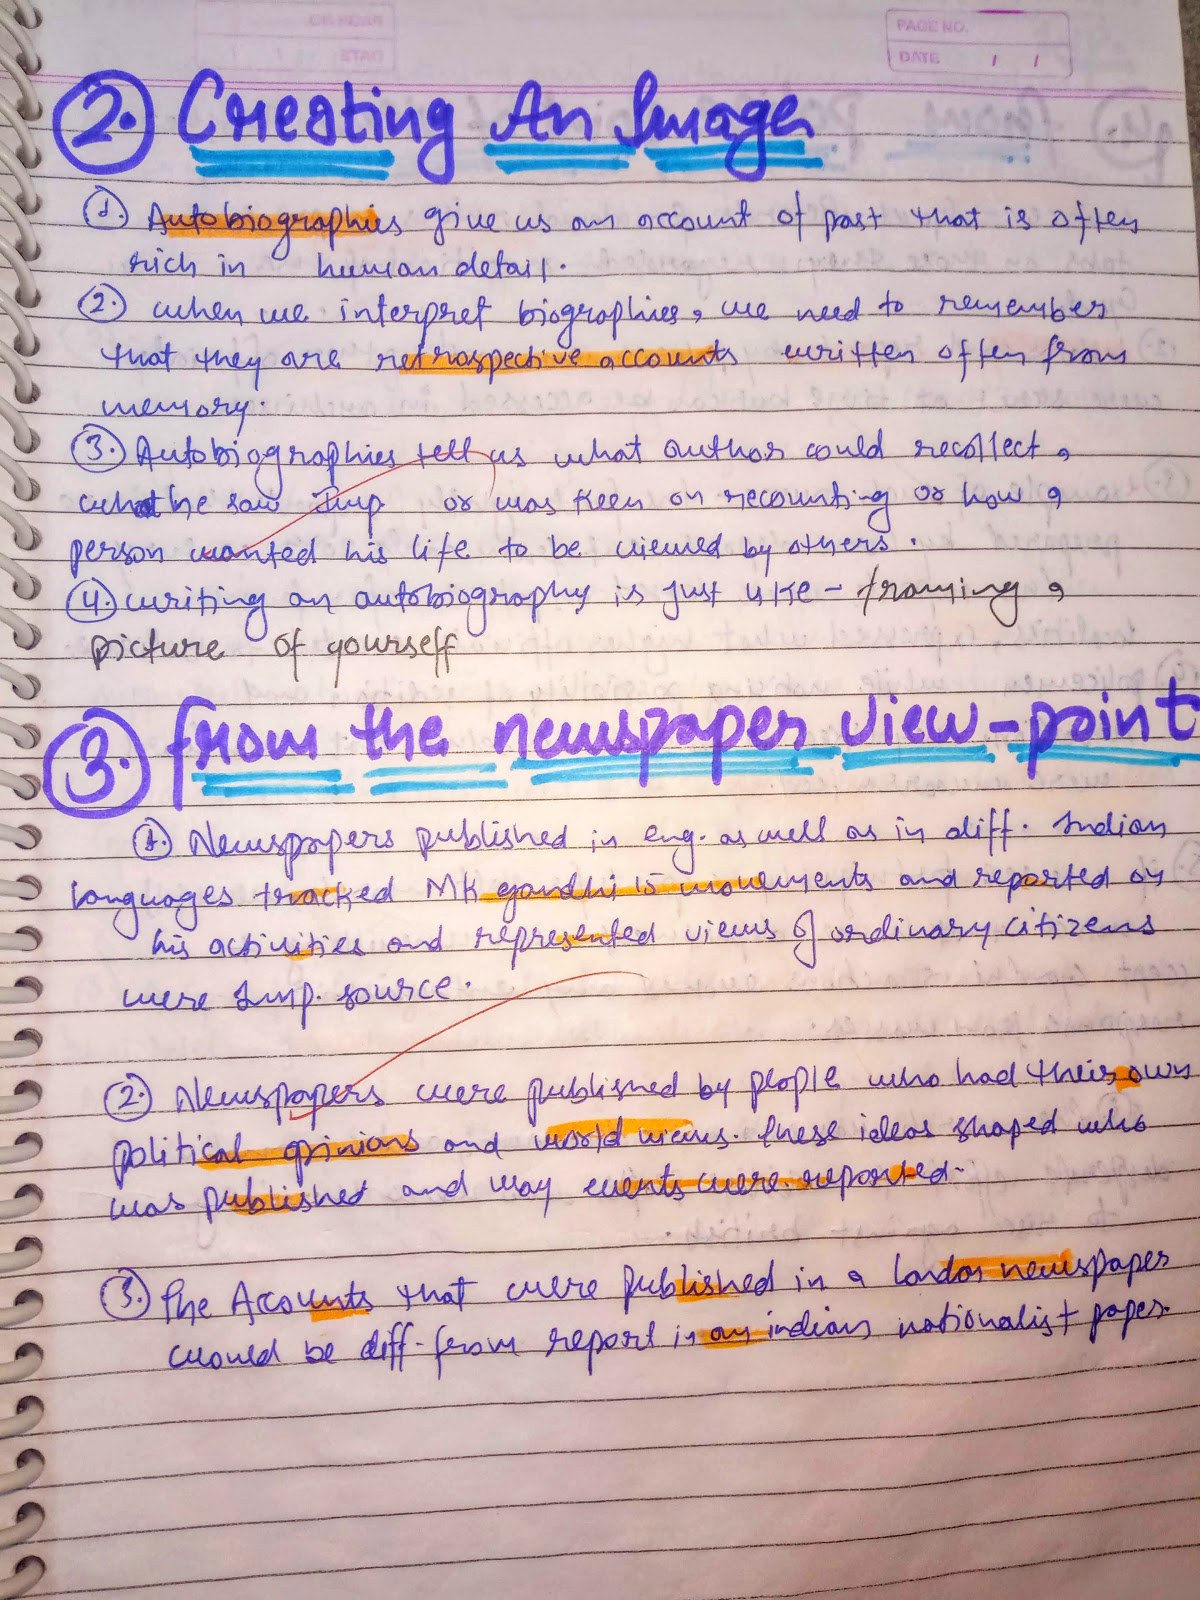 PAGE NO.
DATE / /
2. Creating An Image
1. Autobiographies give us an account of past that is often
rich in human detail.
2. when we interpret biographies, we need to remember
that they are retrospective accounts written often from
memory.
3. Autobiographies tell us what author could recollect,
what he saw Imp or was keen on recounting or how a
person wanted his life to be viewed by others.
4. writing an autobiography is just like - framing a
picture of yourself
3. from the newspaper view-point
1. Newspapers published in eng. as well as in diff. Indian
languages tracked MK gandhi's movements and reported on
his activities and represented views of ordinary citizens
were Imp. source.
2. Newspapers were published by people who had their own
political opinions and world views. these ideas shaped who
was published and way events were reported.
3. The Accounts that were published in a London newspaper
would be diff. from report in an indian nationalist paper.